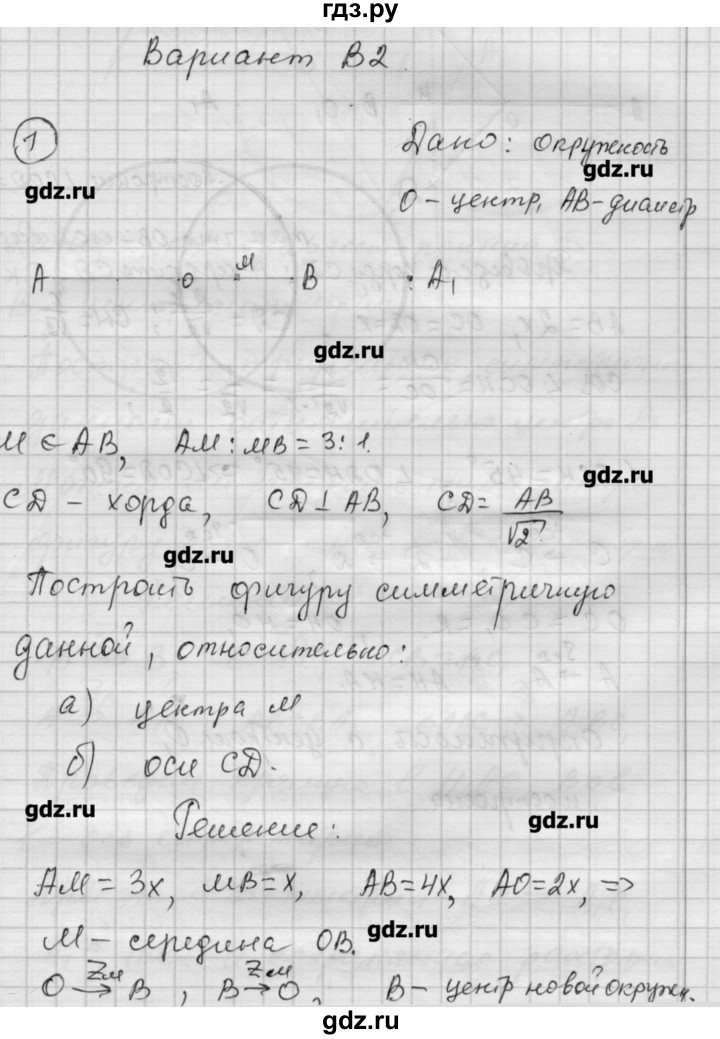 гдз.ру
Вариант В2.
1
Дано: окружность
gdz.ru
gdz.ru
О – центр, АВ – диаметр
А О М В А₁
gdz.ru
М ∈ АВ, АМ : МВ = 3 : 1.
gdz.ru
CD – хорда, CD ⊥ AB, CD = AB/√2
gdz.ru
Построить фигуру симметричную
данной, относительно:
а) центра М
б) оси CD.
gdz.ru
gdz.ru
Решение:
АМ = 3х, МВ = х, АВ = 4х, АО = 2х, =>
М – середина ОВ.
gdz.ru
О →(Zм) В, В →(Zм) О, В – центр новой окружн.
gdz.ru